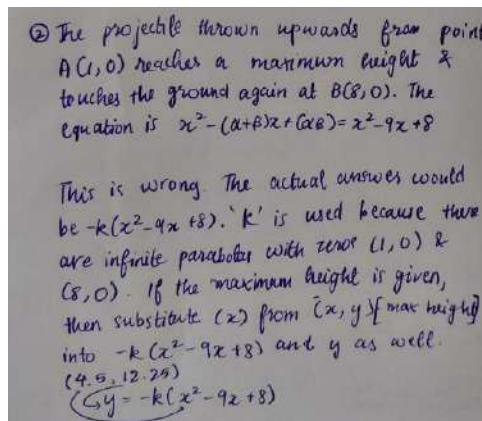 ② The projectile thrown upwards from point
A(1,0) reaches a maximum height &
touches the ground again at B(8,0). The
equation is x²-(α+β)x+(αβ)=x²-9x+8
This is wrong. The actual answer would
be -k(x²-9x+8). 'k' is used because there
are infinite parabolas with zeros (1,0) &
(8,0). If the maximum height is given,
then substitute (x) from (x,y){max height}
into -k(x²-9x+8) and y as well.
(4.5, 12.25)
(↳y = -k(x²-9x+8)